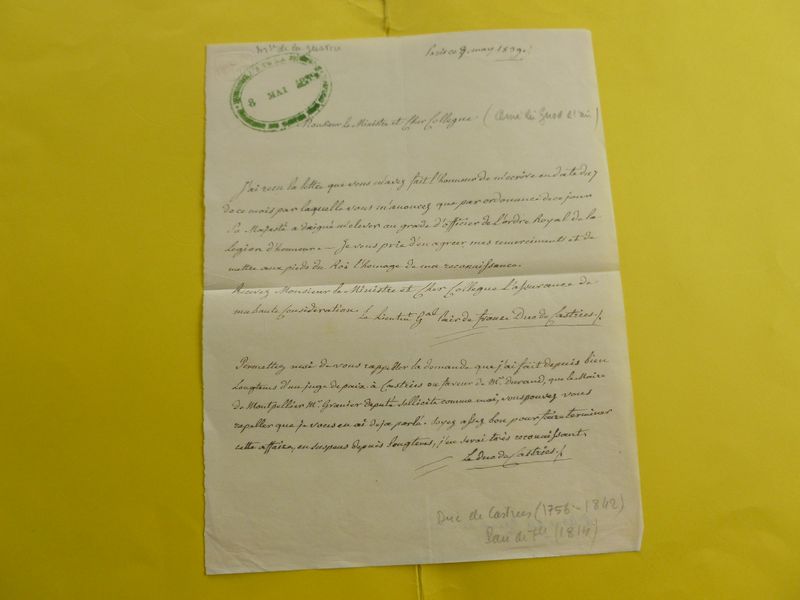 Mtre de la guerre
Paris ce 7 may 1839.
8 MAI
Monsieur le Ministre et Cher Collegue
J'ai recu la lettre que vous m'avez fait l'honneur de m'ecrire en date du
de ce mois par laquelle vous m'anoncez que par ordonance de ce jour
Sa Majesté a daigné m'elever au grade d'officier de L'ordre Royal de la
legion d'honneur — Je vous prie d'en agreer mes remerciments et de
mettre aux pieds du Roi l'homage de ma reconnaissance.
Recevez Monsieur le Ministre et Cher Collegue L'assurance de
ma haute Consideration. Le Lieutent Gal pair de france Duc de Castries
Permettez moi de vous rappeller la demande que j'ai fait depuis bien
Longtems d'un juge de paix à Castries en faveur de Mr. Durand, que le Maire
de Montpellier Mr. Granier deputé sollicite comme moi, vous pouvez vous
rapeller que je vous en ai deja parlé. Soyez assez bon pour faire terminer
cette affaire, en suspens depuis longtems, j'en serai très reconnaissant.
Le Duc de Castries
Duc de Castries (1756-1842)
Pair de Fce (1814)